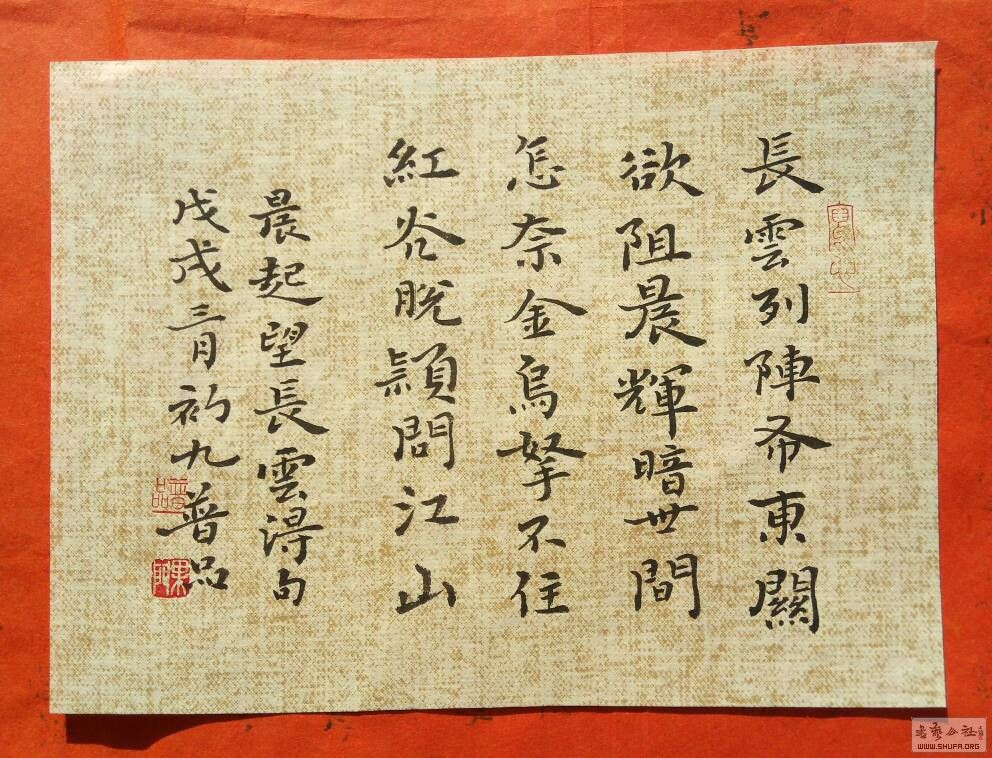 長雲列陣布東關
欲阻晨輝暗世間
怎奈金烏拏不住
紅光脫穎問江山
晨起望長雲得句
戊戌三月初九普品
普品
書藝公社
WWW.SHUFA.ORG